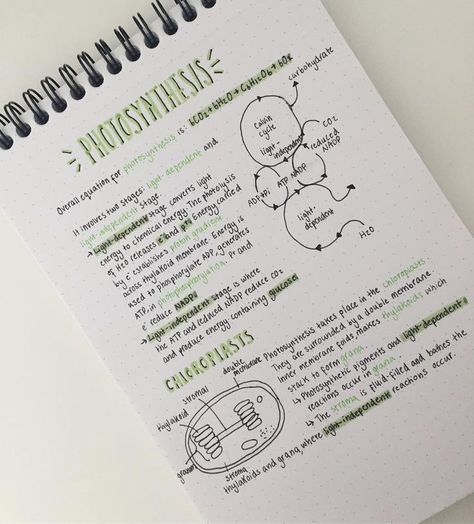 PHOTOSYNTHESIS
Overall equation for photosynthesis is: 6CO2 + 6H2O → C6H12O6 + 6O2
It involves two stages: light-dependent and
light-independent stage
→ Light-dependent stage converts light
energy to chemical energy. The photolysis
of H2O releases e⁻ and p⁺. Energy carried
by e⁻ establishes proton gradient
across thylakoid membrane. Energy is
used to phosphorylate ADP, generates
ATP, in photophosphorylation. p⁺ and
e⁻ reduce NADP.
→ Light-independent stage is where
the ATP and reduced NADP reduce CO2
and produce energy containing glucose
carbohydrate
Calvin
cycle
light-
independent
CO2
reduced
NADP
ADP+Pi
ATP
NADP
light-
dependent
H2O
CHLOROPLASTS
stroma
double
membrane
thylakoid
granum
stroma
Photosynthesis takes place in the chloroplasts.
They are surrounded by a double membrane.
Inner membrane folds, makes thylakoids which
stack to form grana.
↳ Photosynthetic pigments and light-dependent
reactions occur in grana.
↳ The stroma is fluid-filled and bathes the
thylakoids and grana, where light-independent reactions occur.